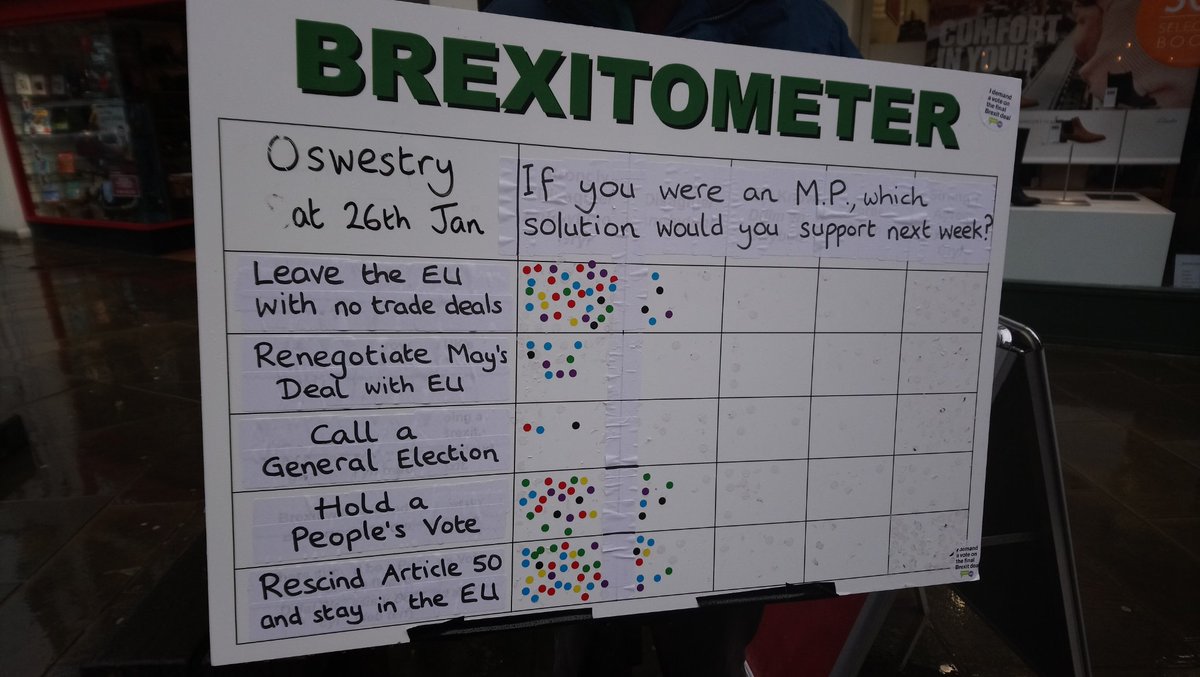 BREXITOMETER
COMFORT
IN YOUR
I demand
a vote on
the final
Brexit deal
Oswestry
at 26th Jan
If you were an M.P., which
solution would you support next week?
Leave the EU
with no trade deals
Renegotiate May's
Deal with EU
Call a
General Election
Hold a
People's Vote
Rescind Article 50
and stay in the EU
demand
a vote on
the final
Brexit deal